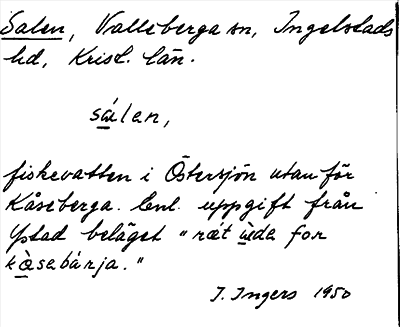 Salen, Valleberga sn, Ingelstads
hd, Krist. län.
sálen,
fiskevatten i Östersjön utanför
Kåseberga. Enl. uppgift från
Ystad beläget "rät ùda for
kåsabárja."
I. Ingers 1950